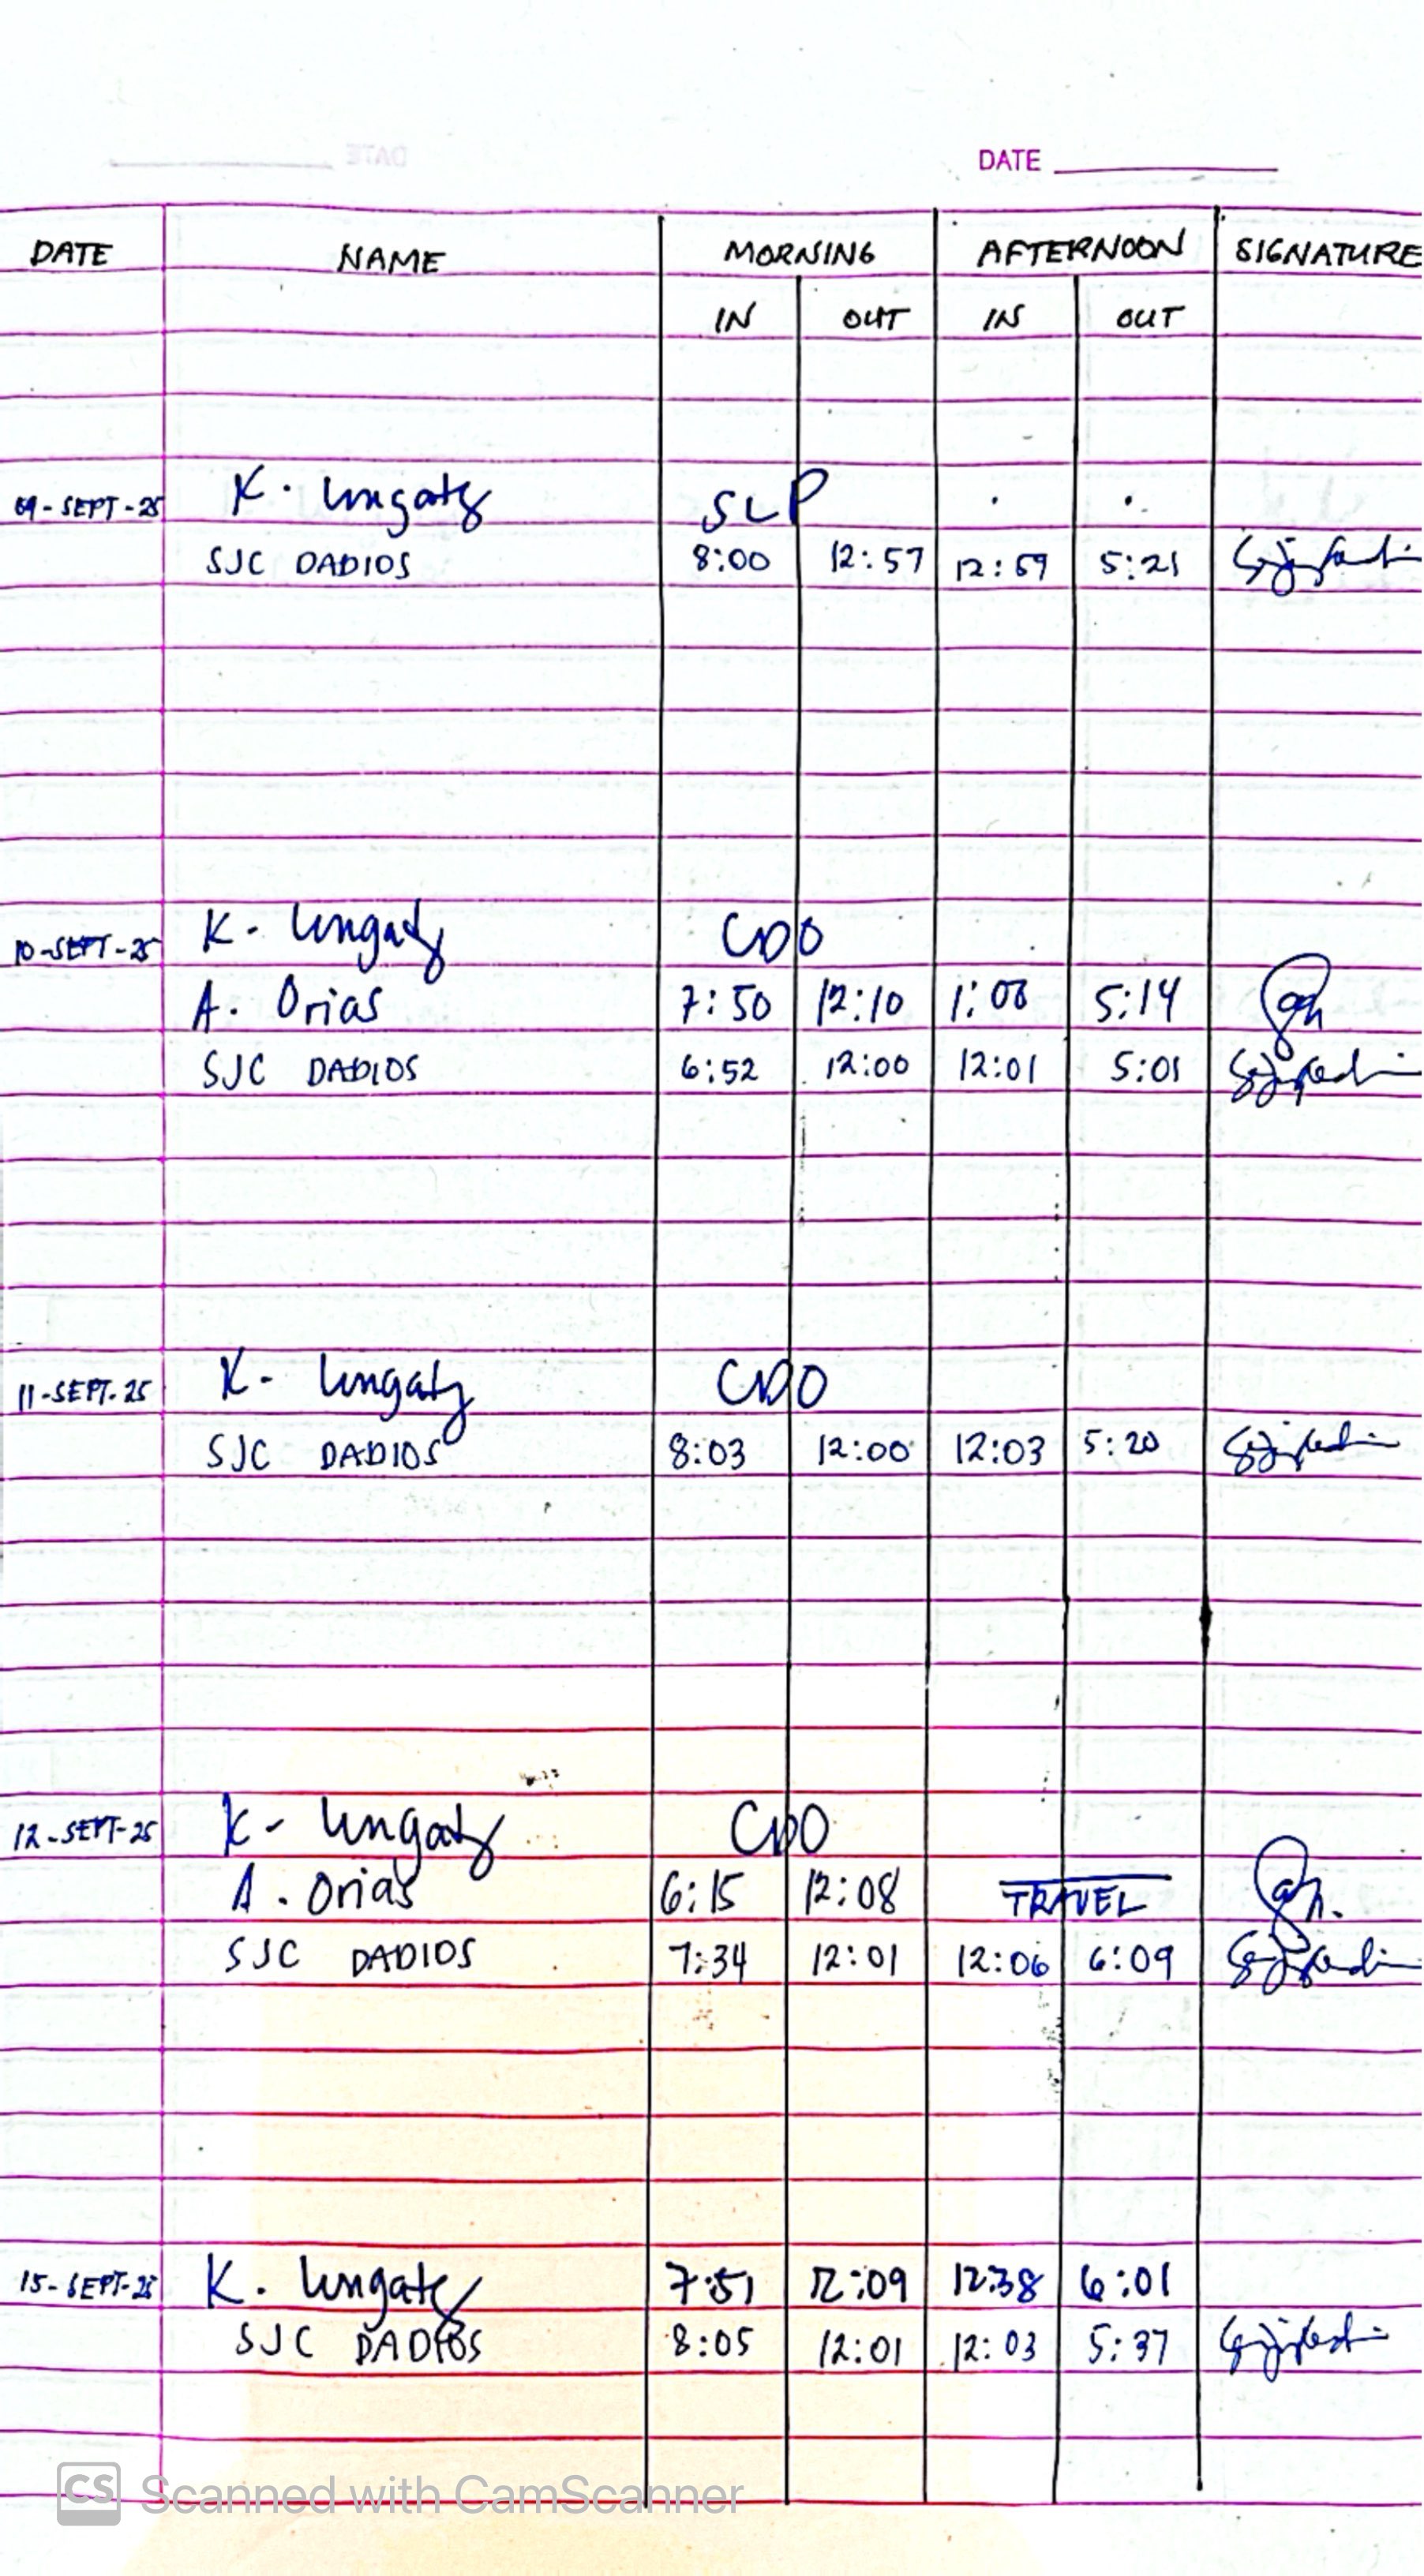 DATE
DATE NAME MORNING AFTERNOON SIGNATURE
IN OUT IN OUT
09-SEPT-25 K. Ungaty SLP
SJC DADIOS 8:00 12:57 12:59 5:21
10-SEPT-25 K. Ungaty CDO
A. Orias 7:50 12:10 1:08 5:14
SJC DADIOS 6:52 12:00 12:01 5:01
11-SEPT-25 K- Ungaty CDO
SJC DADIOS 8:03 12:00 12:03 5:20
12-SEPT-25 K- Ungaty CDO
A. Orias 6:15 12:08 TRAVEL
SJC DADIOS 7:34 12:01 12:06 6:09
15-SEPT-25 K. Ungaty 7:51 12:09 12:38 6:01
SJC DADIOS 8:05 12:01 12:03 5:37
CS Scanned with CamScanner